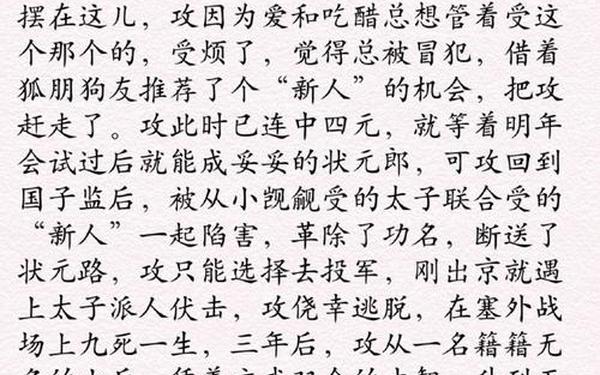 摆在这儿，攻因为爱和吃醋总想管着受这
个那个的，受烦了，觉得总被冒犯，借着
狐朋狗友推荐了个“新人”的机会，把攻
赶走了。攻此时已连中四元，就等着明年
会试过后就能成妥妥的状元郎，可攻回到
国子监后，被从小觊觎受的太子联合受的
“新人”一起陷害，革除了功名，断送了
状元路，攻只能选择去投军，刚出京就遇
上太子派人伏击，攻侥幸逃脱，在塞外战
场上九死一生，三年后，攻从一名籍籍无